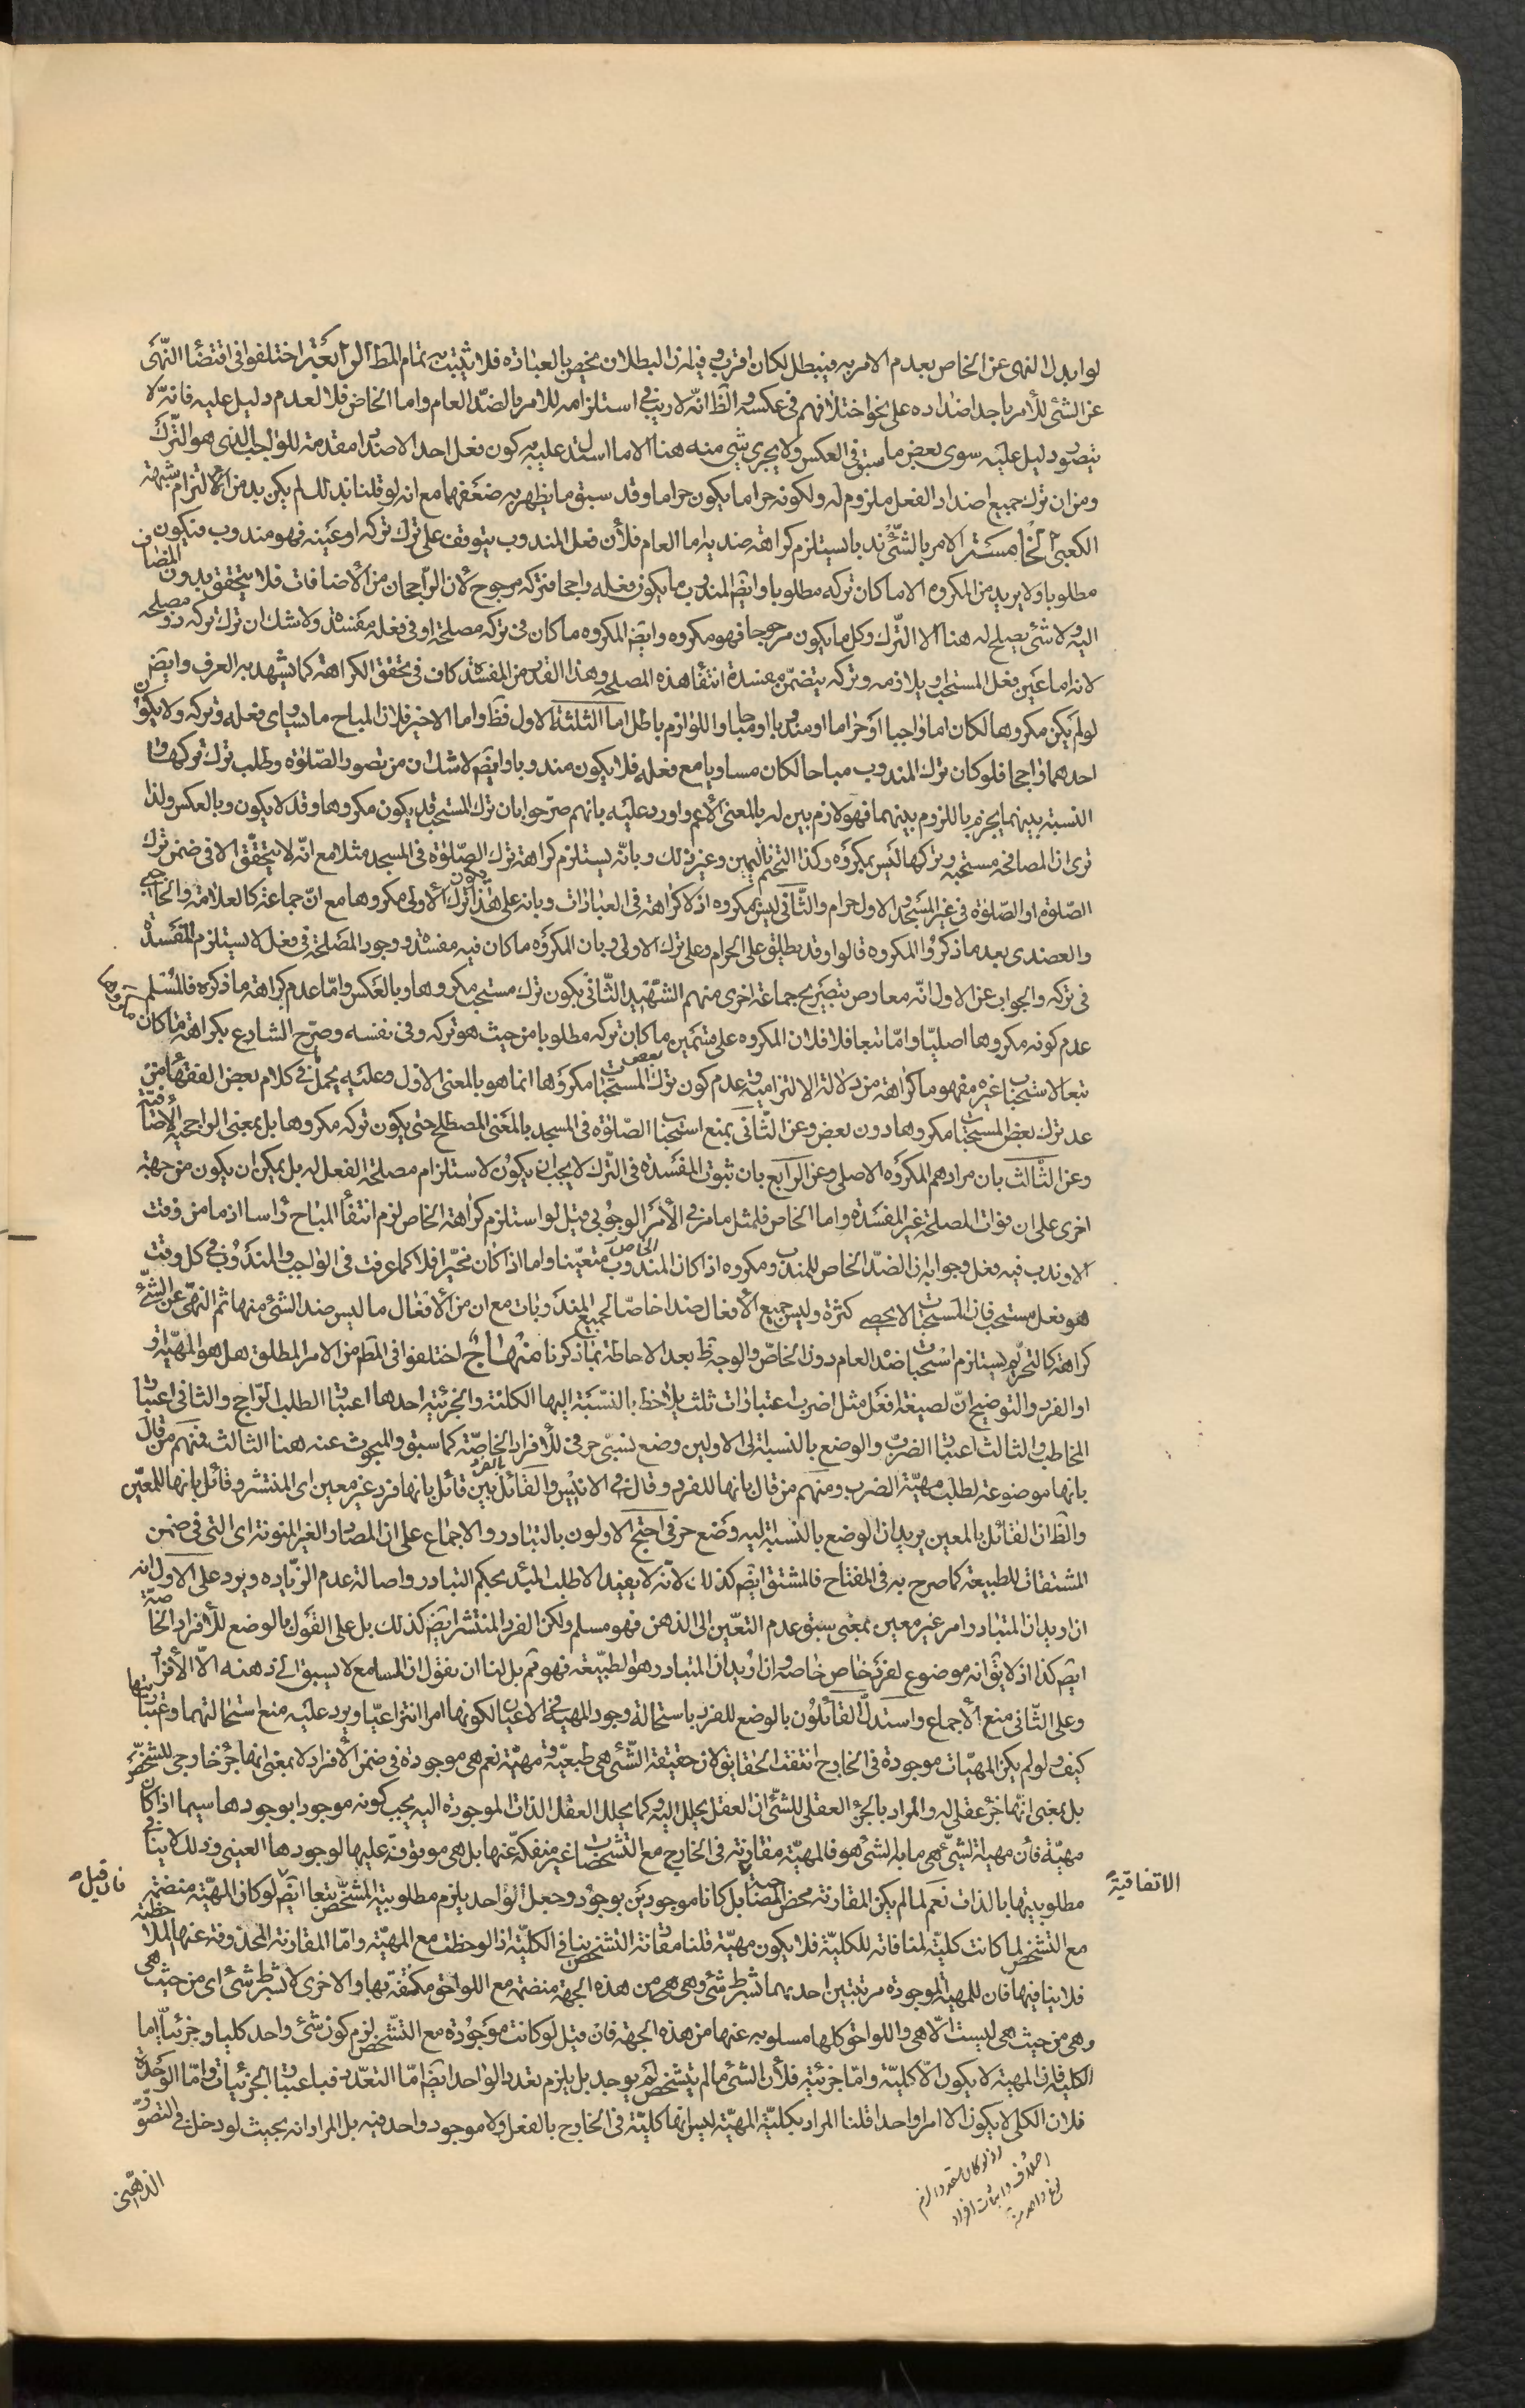 لو ابدل النهى عن الخاص بعدم الامر به فيبطل لكان اقرب وفيه ان البطلان مخص بالعبادة فلا يثبت به تمام المط الرابعة اختلفوا فى اقتضاء النهى
عن الشئ للأمر باحد اضداده على نحو اختلافهم فى عكسه والظ انه لا ريب فى استلزامه للامر بالضد العام واما الخاص فلا لعدم دليل عليه فانه لا
يتصور دليل عليه سوى بعض ما سبق فى العكس ولا يجرى شئ منه هنا الا ما استدل عليه به كون فعل احد الاضداد مقدمة للواجب الذى هو الترك
ومن ان ترك جميع اضداد الفعل ملزوم له ولكونه حراما يكون حراما وقد سبق ما يظهر به ضعفهما مع انه لو قلنا بذلك لم يكن بد من الالتزام بشبهة
الكعبى الخامسة الامر بالشئ ندبا يستلزم كراهة ضديه اما العام فلأن فعل المندوب يتوقف على ترك تركه او عينه فهو مندوب فيكون
مطلوبا ولا يريد من المكروه الا ما كان تركه مطلوبا وايضا المندوب ما يكون فعله راجحا فتركه مرجوح لأن الرجحان من الأضافات فلا يتحقق بدون المضاف
اليه ولا شئ يصلح له هنا الا الترك وكل ما يكون مرجوحا فهو مكروه وايض المكروه ما كان فى تركه مصلحة او فى فعله مفسدة ولا شك ان ترك تركه ذو مصلحة
لانه اما عين فعل المستحب او يلازمه وتركه يتضمن مفسدة انتفاء هذه المصلحة وهذا القدر من المفسدة كاف فى تحقق الكراهة كما يشهد به العرف وايض
لو لم يكن مكروها لكان اما واجبا او حراما او مندوبا او مباحا واللوازم باطل اما الثلثة الاول فظ واما الاخير فلان المباح ما يساوى فعله وتركه ولا يكون
احدهما راجحا فلو كان ترك المندوب مباحا لكان مساويا مع فعله فلا يكون مندوبا وايض لا شك ان من تصور الصلوة وطلب ترك تركها و
النسبة بينهما يجزم باللزوم بينهما فهو لازم بين له بالمعنى الأعم واورد عليه بانهم صرحوا بان ترك المستحب قد يكون مكروها وقد لا يكون وبالعكس ولذا
ترى ان المصافحة مستحبة وتركها ليس بمكروه وكذا التختم باليمين وغير ذلك وبانه يستلزم كراهة ترك الصلوة فى المسجد مثلا مع انه لا يتحقق الا فى ضمن ترك
الصلوة او الصلوة فى غير المسجد والاول حرام والثانى ليس بمكروه اذ لا كراهة فى العبادات وبانه على هذا يكون ترك الأولى مكروها مع ان جماعة كالعلامة والحاجبى
والعضدى بعد ما ذكروا المكروه قالوا وقد يطلق على الحرام وعلى ترك الاولى وبان المكروه ما كان فيه مفسدة ووجود المصلحة فى فعل لا يستلزم المفسدة
فى تركه والجواب عن الاول انه معارض بتصريح جماعة اخرى منهم الشهيد الثانى بكون ترك مستحب مكروها وبالعكس واما عدم كراهة ما ذكره فالمسلم
عدم كونه مكروها اصليا واما تبعا فلا فلان المكروه على قسمين ما كان تركه مطلوبا من حيث هو تركه وفى نفسه وصرح الشارع بكراهته وما كان مكروها
تبعا لاستحباب غيره مفهوما كراهته من دلالة الالتزامية وعدم كون ترك بعض المستحبات مكروها انما هو بالمعنى الاول وعليه يحمل ما فى كلام بعض الفقهاء من
عد ترك بعض المستحبات مكروها دون بعض وعن الثانى بمنع استحباب الصلوة فى المسجد بالمعنى المصطلح حتى يكون تركه مكروها بل بمعنى الراجحية الاضافية
وعن الثالث بان مرادهم المكروه الاصلى وعن الرابع بان ثبوت المفسدة فى الترك لا يجب ان يكون لاستلزام مصلحة الفعل له بل يمكن ان يكون من جهة
اخرى على ان فوات المصلحة غير المفسدة واما الخاص فلمثل ما مر فى الأمر الوجوبى قيل لو استلزم كراهة الخاص لزم انتفاء المباح رأسا اذ ما من وقت
الا وندب فيه فعل وجوابه ان الضد الخاص للمندوب مكروه اذا كان المندوب الخاص متعينا واما اذا كان مخيرا فلا كما عرفت فى الواجب والمندوب فى كل وقت
هو فعل مستحب فان المستحبات لا يحصى كثرة وليس جميع الأفعال ضدا خاصا لجميع المندوبات مع ان من الأفعال ما ليس ضد الشئ منها ثم النهى عن الشئ
كراهة كالتحريم يستلزم استحباب ضد العام دون الخاص والوجه ظ بعد الاحاطة بما ذكرنا منهاج اختلفوا فى المط من الامر المطلق هل هو المهية
او الفرد والتوضيح ان لصيغة افعل مثل اضرب اعتبارات ثلث يلاحظ بالنسبة اليها الكلية والجزئية احدها اعتبار الطلب الراجح والثانى اعتبار
المخاطب والثالث اعتبار الضرب والوضع بالنسبة الى الاولين وضع نسبى حرفى للأفراد الخاصة كما سبق والمبحوث عنه هنا الثالث فمنهم من قال
بانها موضوعة لطلب مهية الضرب ومنهم من قال بانها للفرد وقال فى الانيس والقائل بالفرد بين قائل بانها فرد غير معين اى المنتشر وقائل بانها للمعين
والظ ان القائل بالمعين يريد ان الوضع بالنسبة اليه وضع حرفى احتج الاولون بالتبادر والاجماع على ان المصادر الغير المنونة اى التى فى ضمن
المشتقات للطبيعة كما صرح به فى المفتاح فالمشتق ايض كذلك لانه لا يفيد الا طلب المبدء بحكم التبادر واصالة عدم الزيادة ويرد على الاول انه
ان اريد ان المتبادر امر غير معين بمعنى سبق عدم التعين الى الذهن فهو مسلم ولكن الفرد المنتشر ايض كذلك بل على القول بالوضع للأفراد الخاصة
ايض كذا اذ لا يق انه موضوع لفرد خاص خاص وان اريد ان المتبادر هو الطبيعة فهو مم بل لنا ان نقول ان السامع لا يسبق الى ذهنه الا الأفراد
وعلى الثانى منع الأجماع واستدل القائلون بالوضع للفرد باستحالة وجود المهية فى الاعيان لكونها امرا انتزاعيا ويرد عليه منع استحالتهما وغيبتها
كيف ولو لم يكن المهيات موجودة فى الخارج انتفت الحقايق لان حقيقة الشئ هى طبيعته ومهية نعم هى موجودة فى ضمن الأفراد لا بمعنى انها جزء خارجى للشخص
بل بمعنى انها جزء عقلى له والمراد بالجزء العقلى للشئ ان العقل يحلل اليه وكما يحلل العقل الذات الموجودة اليه يجب كونه موجودا بوجودها سيما اذا كان
مهية فان مهية الشئ هى ما به الشئ هو فالمهية مقارنة فى الخارج مع التشخصات غير منفكة عنها بل هى موقوفة عليها لوجودها العينى وذلك لا ينافى
مطلوبيتها بالذات نعم لما لم يكن المقارنة محض المصاحبة الاتفاقية بل كانا موجودين بوجود وجعل الواحد يلزم مطلوبية التشخص تبعا ايض فان قيل لو كان المهية منضمة
مع التشخص لما كانت كلية لمنافاته للكلية فلا يكون مهية قلنا مقارنة التشخص ينافى الكلية اذا لوحظت مع المهية واما المقارنة المحذوفة عنها الملاحظة
فلا ينافيها فان للمهية الموجودة مرتبتين احدهما بشرط شئ وهى هى من هذه الجهة منضمة مع اللواحق مكتنفة بها والاخرى لا بشرط شئ اى من حيث هى
وهى من حيث هى ليست الا هى واللواحق كلها مسلوبة عنها من هذه الجهة فان قيل لو كانت موجودة مع التشخص لزم كون شئ واحد كليا وجزئيا اما
الكلية فان المهية لا يكون الا كلية واما جزئية فلأن الشئ ما لم يتشخص لم يوجد بل يلزم تعدد الواحد ايض اما التعدد فباعتبار الجزئيات واما الوحدة
فلان الكلى لا يكون الا امرا واحدا قلنا المراد بكلية المهية ليس انها كلية فى الخارج بالفعل ولا موجود واحد فيه بل المراد انه بحيث لو دخل فى التصور
الذهنى